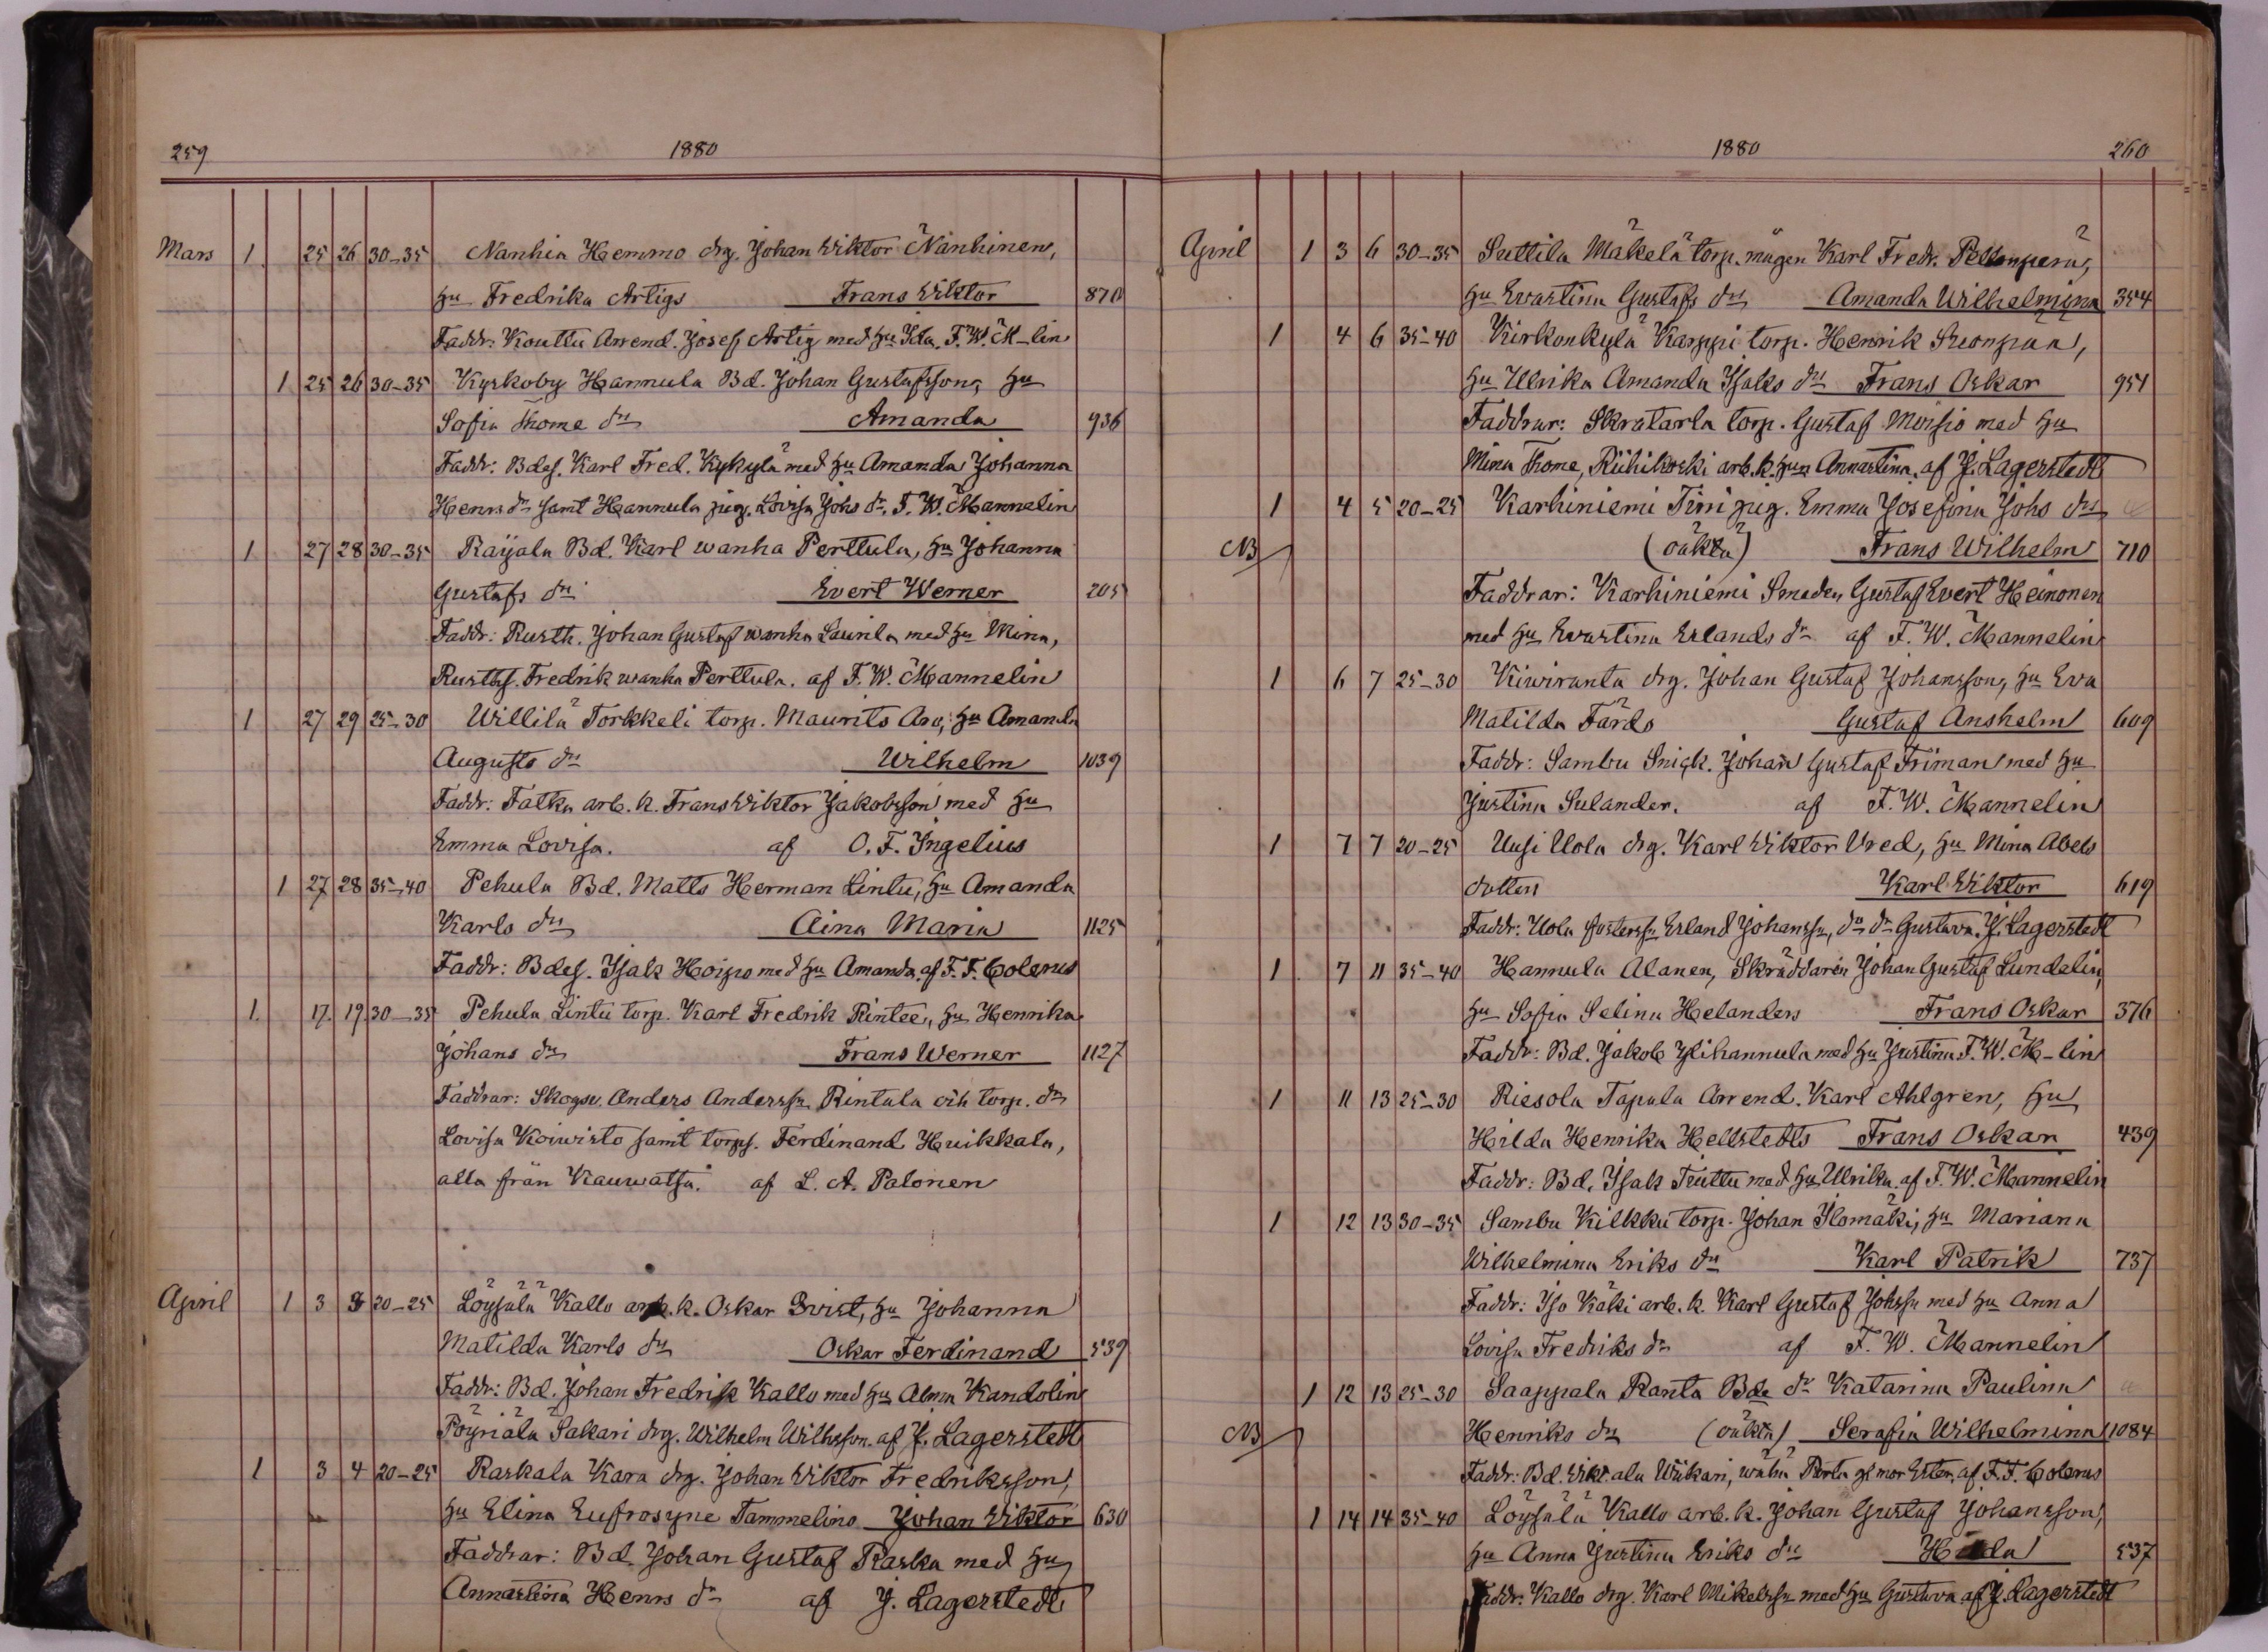 259 1880
Mars 1 25 26 30-35 Nanhia Hemmo drg. Johan Wiktor Nanhinen,
hu Fredrika Artigs Frans Wiktor 870
Faddr: Kouttu Arrend. Josef Artig med hu Ida. F. W. M-lin
1 25 26 30-35 Kyrkoby Hannula Bd. Johan Gustafsson, hu
Sofia Thome dr Amanda 936
Faddr: Bdes. Karl Fred. Kykylä med hu Amanda Johanna
Henrs dr samt Hannula pig. Lovisa Johs dr. F. W. Mannelin
1 27 28 30-35 Raijala Bd. Karl wanha Perttula, hu Johanna
Gustafs dr Evert Werner 205
Faddr: Rusth. Johan Gustaf wanha Laurila med hu Mina,
Rusths. Fredrik wanha Perttula. af F. W. Mannelin
1 27 29 25-30 Willilä Torkkeli torp. Maurits Aro, hu Amanda
Augusts dr Wilhelm 1039
Faddr: Fatku arb. k. Frans Wiktor Jakobsson med hu
Emma Lovisa. af O. F. Ingelius
1 27 28 35-40 Pehula Bd. Matts Herman Lintu, hu Amanda
Karls dr Aina Maria 1125
Faddr: Bdes. Isak Hoipo med hu Amanda. af F. F. Colerus
1 17 19 30-35 Pehula Lintu torp. Karl Fredrik Rintee, hu Henrika
Johans dr Frans Werner 1127
Faddrar: Skogsv. Anders Anderssn Rintala och torp. dr
Lovisa Koiwisto samt torps. Ferdinand Huikkala,
alla från Kauwatsa. af L. A. Palonen
April 1 3 20-25 Löysälä Kallo arb. k. Oskar Qvist, hu Johanna
Matilda Karls dr Oskar Ferdinand 539
Faddr: Bd. Johan Fredrik Kallo med hu Alma Kandolin
Pöyriälä Sakari drg. Wilhelm Wilhsson. af J. Lagerstedt
1 3 4 20-25 Raskala Kara drg. Johan Wiktor Fredriksson,
hu Elina Eufrosyne Tammelins Johan Wiktor 630
Faddrar: Bd. Johan Gustaf Raska med hu
Annastina Henrs dr af J. Lagerstedt
1880 260
April 1 3 6 30-35 Suttila Mäkelä torp. mågen Karl Fredr. Peltonperä,
hu Evastina Gustafs dr Amanda Wilhelmina 354
1 4 6 35-40 Kirkonkylä Karppi torp. Henrik Suonpää,
hu Ulrika Amanda Isaks dr Frans Oskar 951
Faddrar: Skratarla torp. Gustaf Moisio med hu
Mina Thome, Riihikoski arb. k. hun Annastina. af J. Lagerstedt
1 4 5 20-25 Karhiniemi Timi pig. Emma Josefina Johs dr
NB (oäkta) Frans Wilhelm 710
Faddrar: Karhiniemi Smeden Gustaf Evert Heinonen
med hu Evastina Erlands dr af F. W. Mannelin
1 6 7 25-30 Kiwiranta drg. Johan Gustaf Johansson, hu Eva
Matilda Färds Gustaf Anshelm 609
Faddr: Sambu Snick. Johan Gustaf Friman med hu
Justina Sulander. af F. W. Mannelin
1 7 7 20-25 Uusi Uola drg. Karl Wiktor Vred, hu Mina Abels
dotter Karl Wiktor 619
Faddr: Uola fosterssn Erland Johanssn, do dr Gustava. J. Lagerstedt
1 7 11 35-40 Hannula Alanen, Skräddaren Johan Gustaf Lundelin,
hu Sofia Selina Helanders Frans Oskar 376
Faddr: Bd. Jakob Ylihannula med hu Justina. F. W. M-lin
1 11 13 25-30 Riesola Tapula Arrend. Karl Ahlgren, hu
Hilda Henrika Hellstedts Frans Oskar 439
Faddr: Bd. Isak Truttu med hu Ulrika. af F. W. Mannelin
1 12 13 30-35 Sambu Kilkku torp. Johan Ilomäki, hu Mariana
Wilhelmina Eriks dr Karl Patrik 737
Faddr: Iso Käki arb. k. Karl Gustaf Johssn med hu Anna
Lovisa Fredriks dr af F. W. Mannelin
1 12 13 25-30 Saappala Ranta Bde dr Katarina Paulina
NB Henriks dr (oäkta) Serafia Wilhelmina 1084
Faddr: Bd. Wiktala Wiikari, Perta gl mor Ester. af F. F. Colerus
1 14 14 35-40 Löysälä Kallo arb. k. Johan Gustaf Johansson,
hu Anna Justina Eriks dr Hilda 537
Faddr: Kallo drg. Karl Mikelssn med hu Gustava af J. Lagerstedt